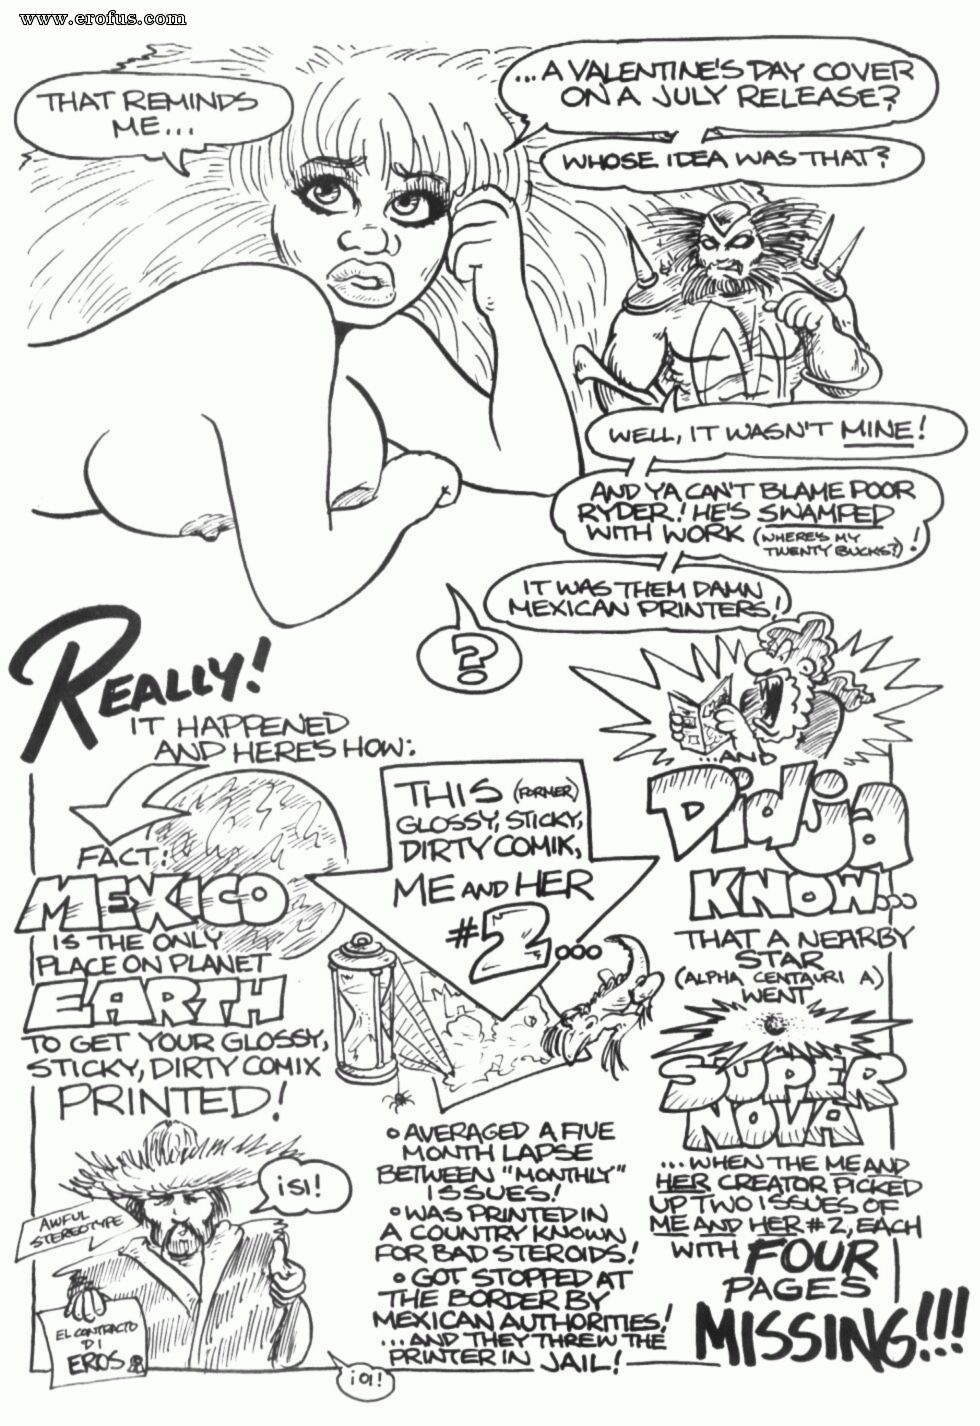 www.erofus.com
THAT REMINDS
ME...
...A VALENTINE'S DAY COVER
ON A JULY RELEASE?
WHOSE IDEA WAS THAT?
WELL, IT WASN'T MINE!
AND YA CAN'T BLAME POOR
RYDER! HE'S SWAMPED
WITH WORK (WHERE'S MY
TWENTY BUCKS?)!
IT WAS THEM DAMN
MEXICAN PRINTERS!
?
REALLY!
IT HAPPENED
AND HERE'S HOW:
FACT:
MEXICO
IS THE ONLY
PLACE ON PLANET
EARTH
TO GET YOUR GLOSSY,
STICKY, DIRTY COMIX
PRINTED!
¡SI!
AWFUL
STEREOTYPE
EL CONTRACTO
DI
EROS
THIS (FORMER)
GLOSSY, STICKY,
DIRTY COMIK,
ME AND HER
#2...
• AVERAGED A FIVE
MONTH LAPSE
BETWEEN "MONTHLY"
ISSUES!
• WAS PRINTED IN
A COUNTRY KNOWN
FOR BAD STEROIDS!
• GOT STOPPED AT
THE BORDER BY
MEXICAN AUTHORITIES!
...AND THEY THREW THE
PRINTER IN JAIL!
...AND
Didja
KNOW...
THAT A NEARBY
STAR
(ALPHA CENTAURI A)
WENT
SUPER
NOVA
...WHEN THE ME AND
HER CREATOR PICKED
UP TWO ISSUES OF
ME AND HER #2, EACH
WITH FOUR
PAGES
MISSING!!!